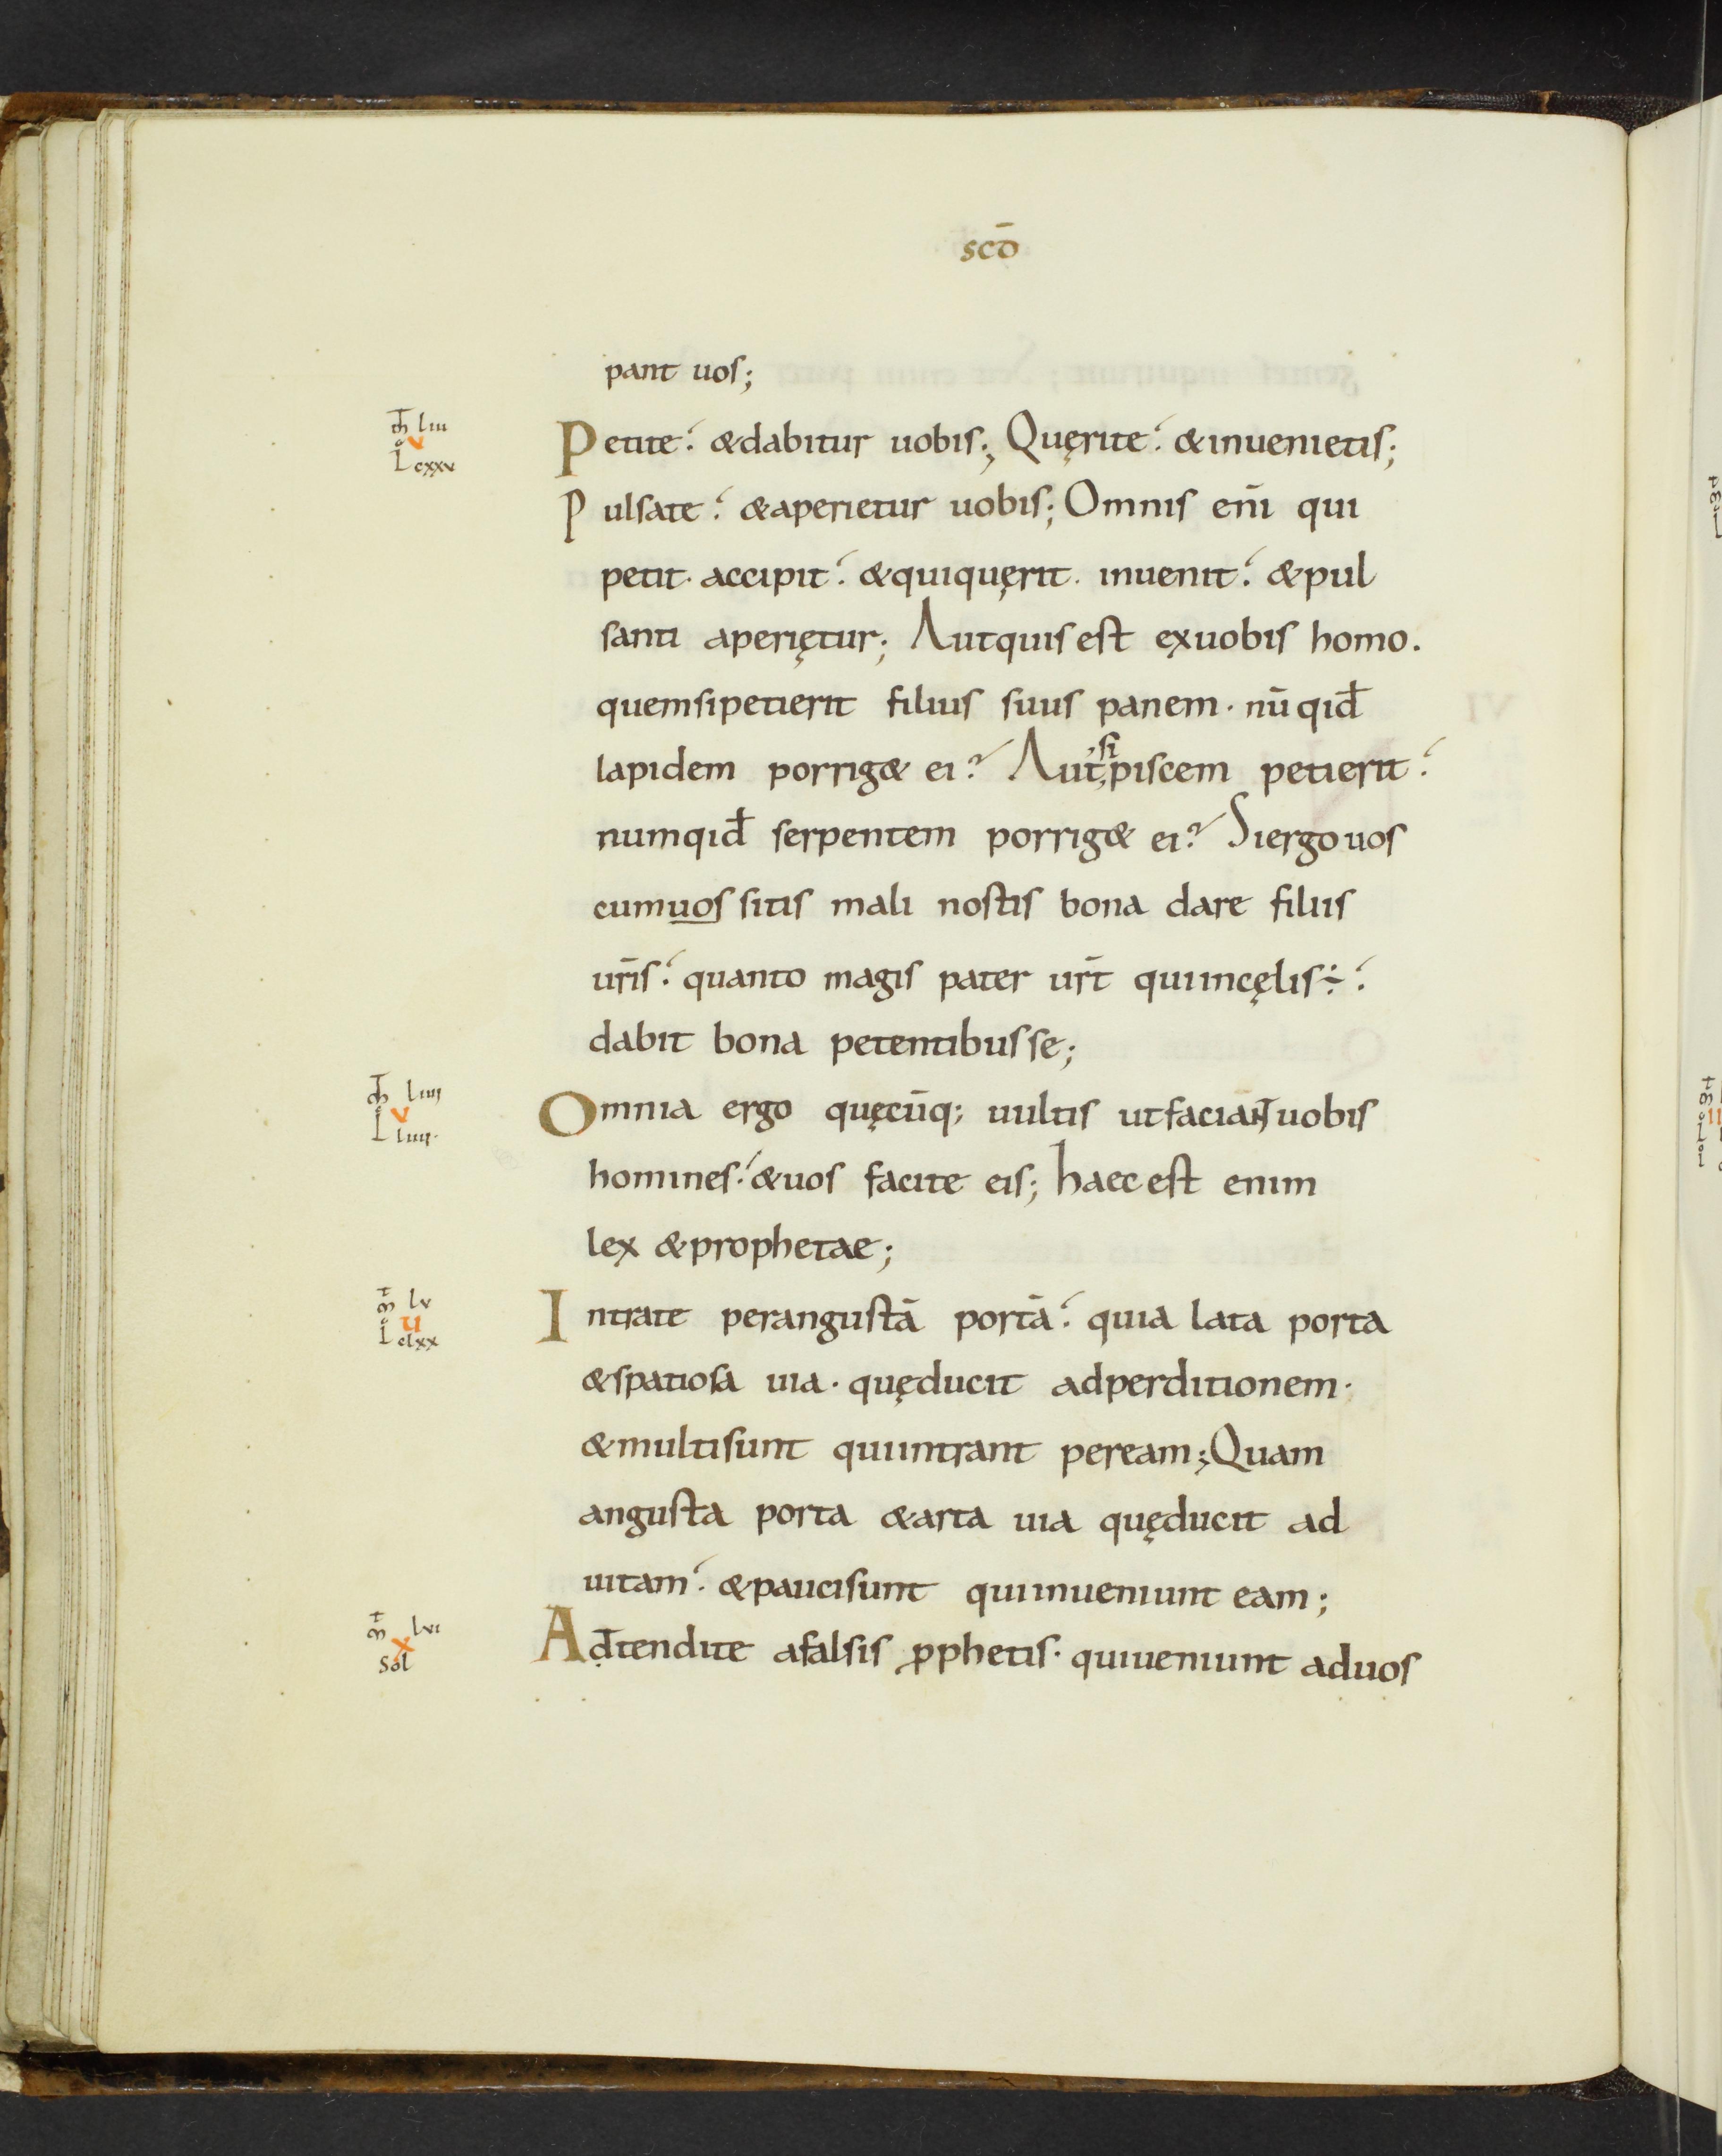 scō
pant uos;
mt̄ liii
v
Petite: & dabitur uobis; Quęrite: & inuenietis;
L cxxv
Pulsate: & aperietur uobis; Omnis enī qui
petit· accipit: & qui quęrit· inuenit: & pul
santi aperiętur; Aut quis est ex uobis homo.
quem si petierit filius suus panem· nū qid̄
lapidem porrig& ei? Aut si piscem petierit:
numqid̄ serpentem porrig& ei? Si ergo uos
cum uos sitis mali nostis bona dare filiis
ur̄is: quanto magis pater ur̄t qui in cęlis ÷:
dabit bona petentibus se;
mt̄ liiii
v
Omnia ergo quęcūq; uultis ut faciant uobis
L liiii·
homines: & uos facite eis; haec est enim
lex & prophetae;
mt̄ lv
Intrate per angustā portā: quia lata porta
u
L clxx
& spatiosa uia· quę ducit ad perditionem·
& multi sunt qui intrant per eam; Quam
angusta porta & arta uia quę ducit ad
uitam: & pauci sunt qui inueniunt eam;
mt̄ lvi
x
Adtendite a falsis ꝓphetis· qui ueniunt ad uos
Sol